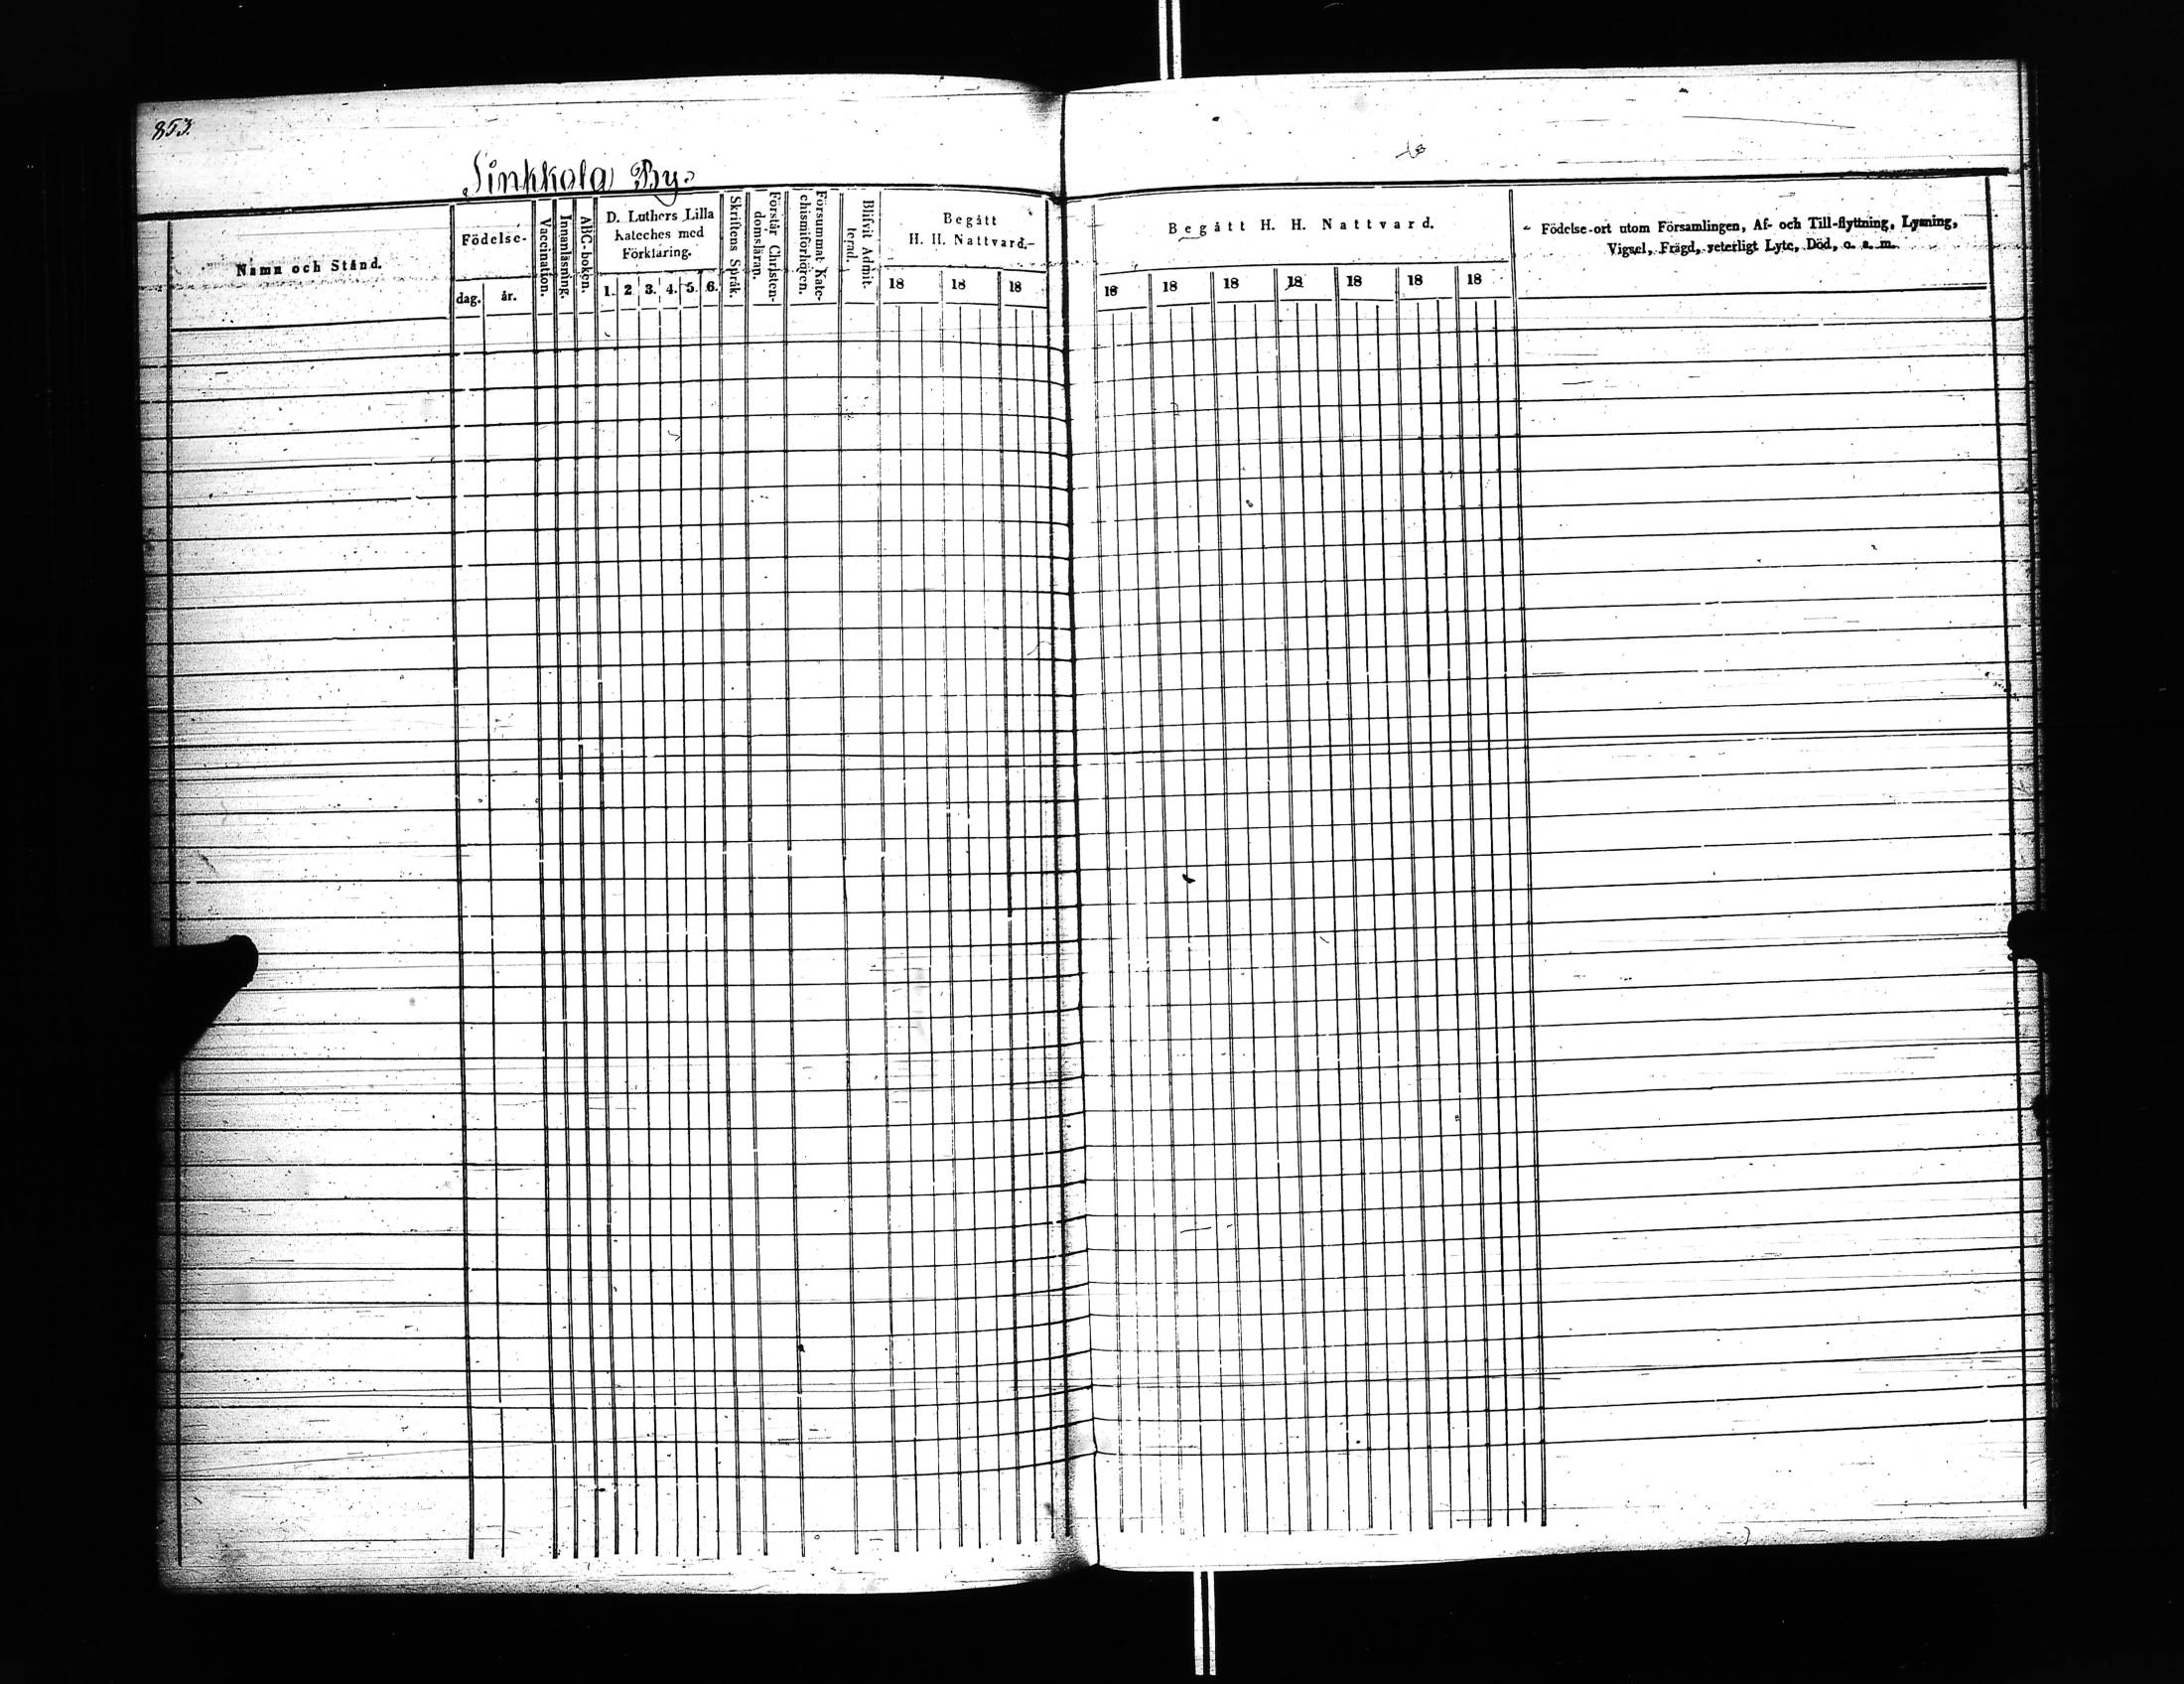 853.
Sinkkola By.
Namn och Stånd.
Födelse-
dag.
år.
Vaccination.
Innanläsning.
ABC-boken.
D. Luthers Lilla
Kateches med
Förklaring.
1. 2 3. 4. 5. 6.
Skriftens Språk.
Förstår Christen-
domsläran.
Försummat Kate-
chismiförhören.
Blifvit Admit-
terad.
Begått
H. H. Nattvard.
18 18 18
Begått H. H. Nattvard.
18 18 18 18 18 18 18
Födelse-ort utom Församlingen, Af- och Till-flyttning, Lysning,
Vigsel, Frägd, veterligt Lyte, Död, o. s. m.